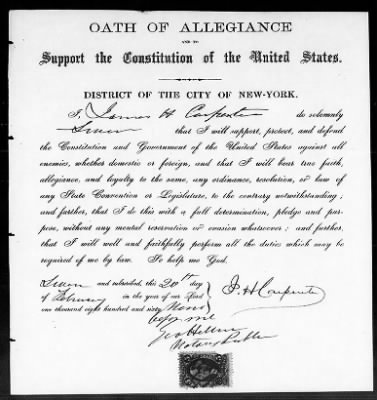 OATH OF ALLEGIANCE
AND TO
Support the Constitution of the United States.
DISTRICT OF THE CITY OF NEW-YORK.
I, James H Carpenter do solemnly
Swear that I will support, protect, and defend
the Constitution and Government of the United States against all
enemies, whether domestic or foreign, and that I will bear true faith,
allegiance, and loyalty to the same, any ordinance, resolution, or law of
any State Convention or Legislature, to the contrary notwithstanding;
and further, that I do this with a full determination, pledge and pur-
pose, without any mental reservation or evasion whatsoever; and further,
that I will well and faithfully perform all the duties which may be
required of me by law. So help me God.
Sworn and subscribed, this 20th day
of February in the year of our Lord
one thousand eight hundred and sixty
J. H Carpenter
before me
Notary Public